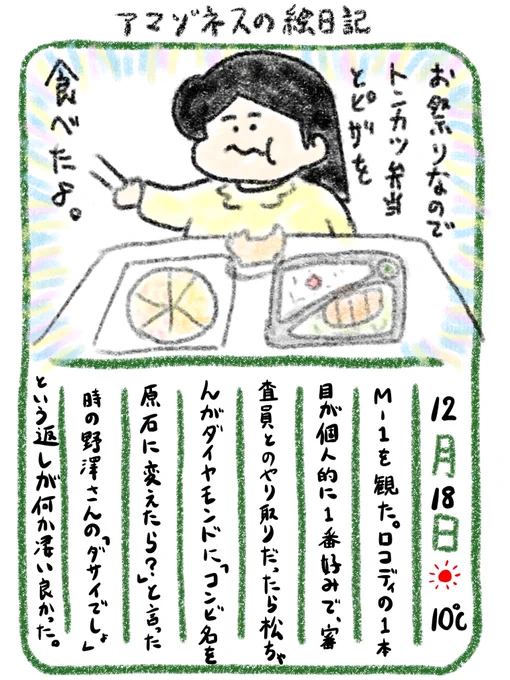 アマゾネスの絵日記
お祭りなので
トンカツ弁当
とピザを
食べたよ。
12月18日 10℃
M-1を観た。ロコディの1本
目が個人的に1番好みで、審
査員とのやり取りだったら松ちゃ
んがダイヤモンドに「コンビ名を
原石に変えたら?」と言った
時の野澤さんの「ダサイでしょ」
という返しが何か凄い良かった。